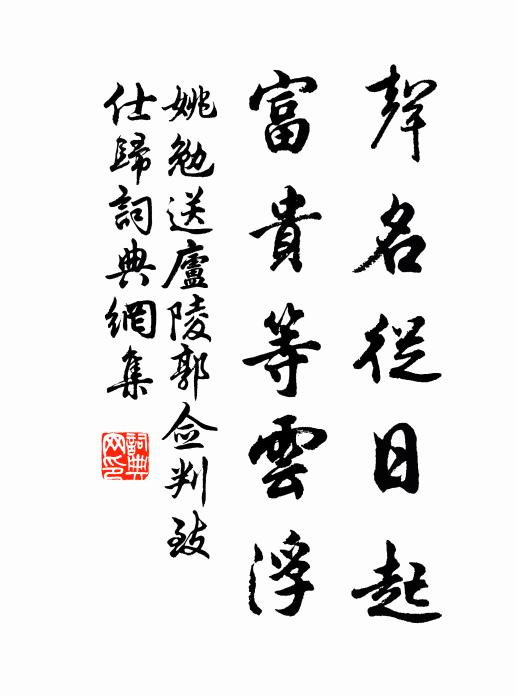 聲名從日起
富貴等雲浮
姚勉送廬陵郭僉判致
仕歸詞典網集
詞典网印